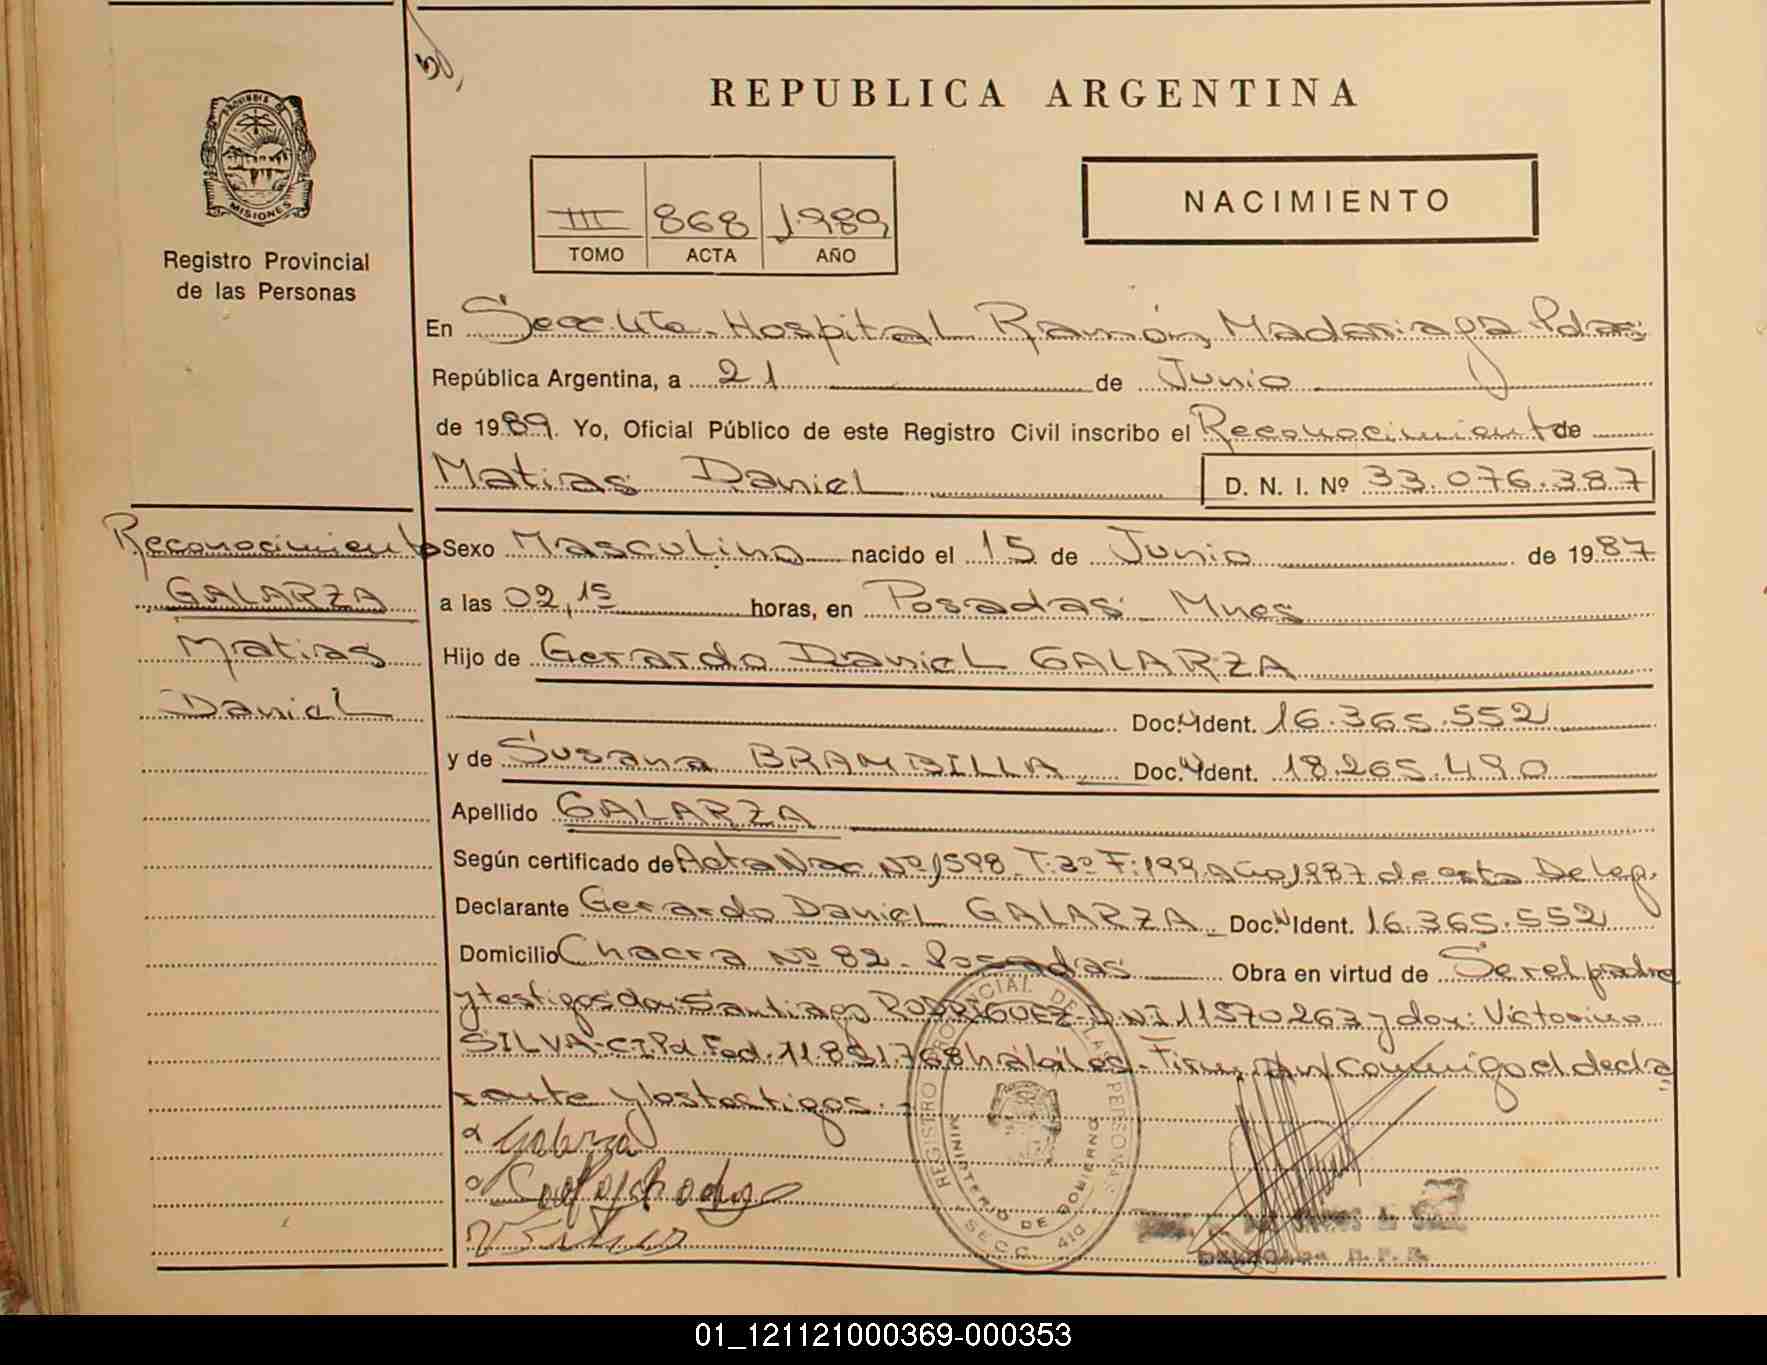 REPUBLICA ARGENTINA
MISIONES
Registro Provincial
de las Personas
III 868 1989
TOMO ACTA AÑO
NACIMIENTO
En Secc. 4ta. Hospital Ramón Madariaga Pdas
República Argentina, a 21 de Junio
de 1989. Yo, Oficial Público de este Registro Civil inscribo el Reconocimiento de
Matias Daniel D. N. I. Nº 33.076.387
Reconocimiento
GALARZA
Matias
Daniel
Sexo Masculino nacido el 15 de Junio de 1987
a las 02,15 horas, en Posadas Mnes
Hijo de Gerardo Daniel GALARZA
Doc. Ident. 16.365.552
y de Susana BRAMBILLA Doc. Ident. 18.265.490
Apellido GALARZA
Según certificado de Acta Nac Nº 1598 T: 3º F: 199 Año 1987 de esta Deleg.
Declarante Gerardo Daniel GALARZA Doc. Ident. 16.365.552
Domicilio Chacra Nº 82 - Posadas Obra en virtud de Ser el padre
y testigos don: Santiago RODRIGUEZ - DNI 11570263 y don: Victorino
SILVA - CI Pd. Fed. 11.851.768 hábiles. Firman conmigo el decla
rante y los testigos. -
Galarza
REGISTRO PROVINCIAL DE LAS PERSONAS
MINISTERIO DE GOBIERNO
SECC. 4ta
01_121121000369-000353